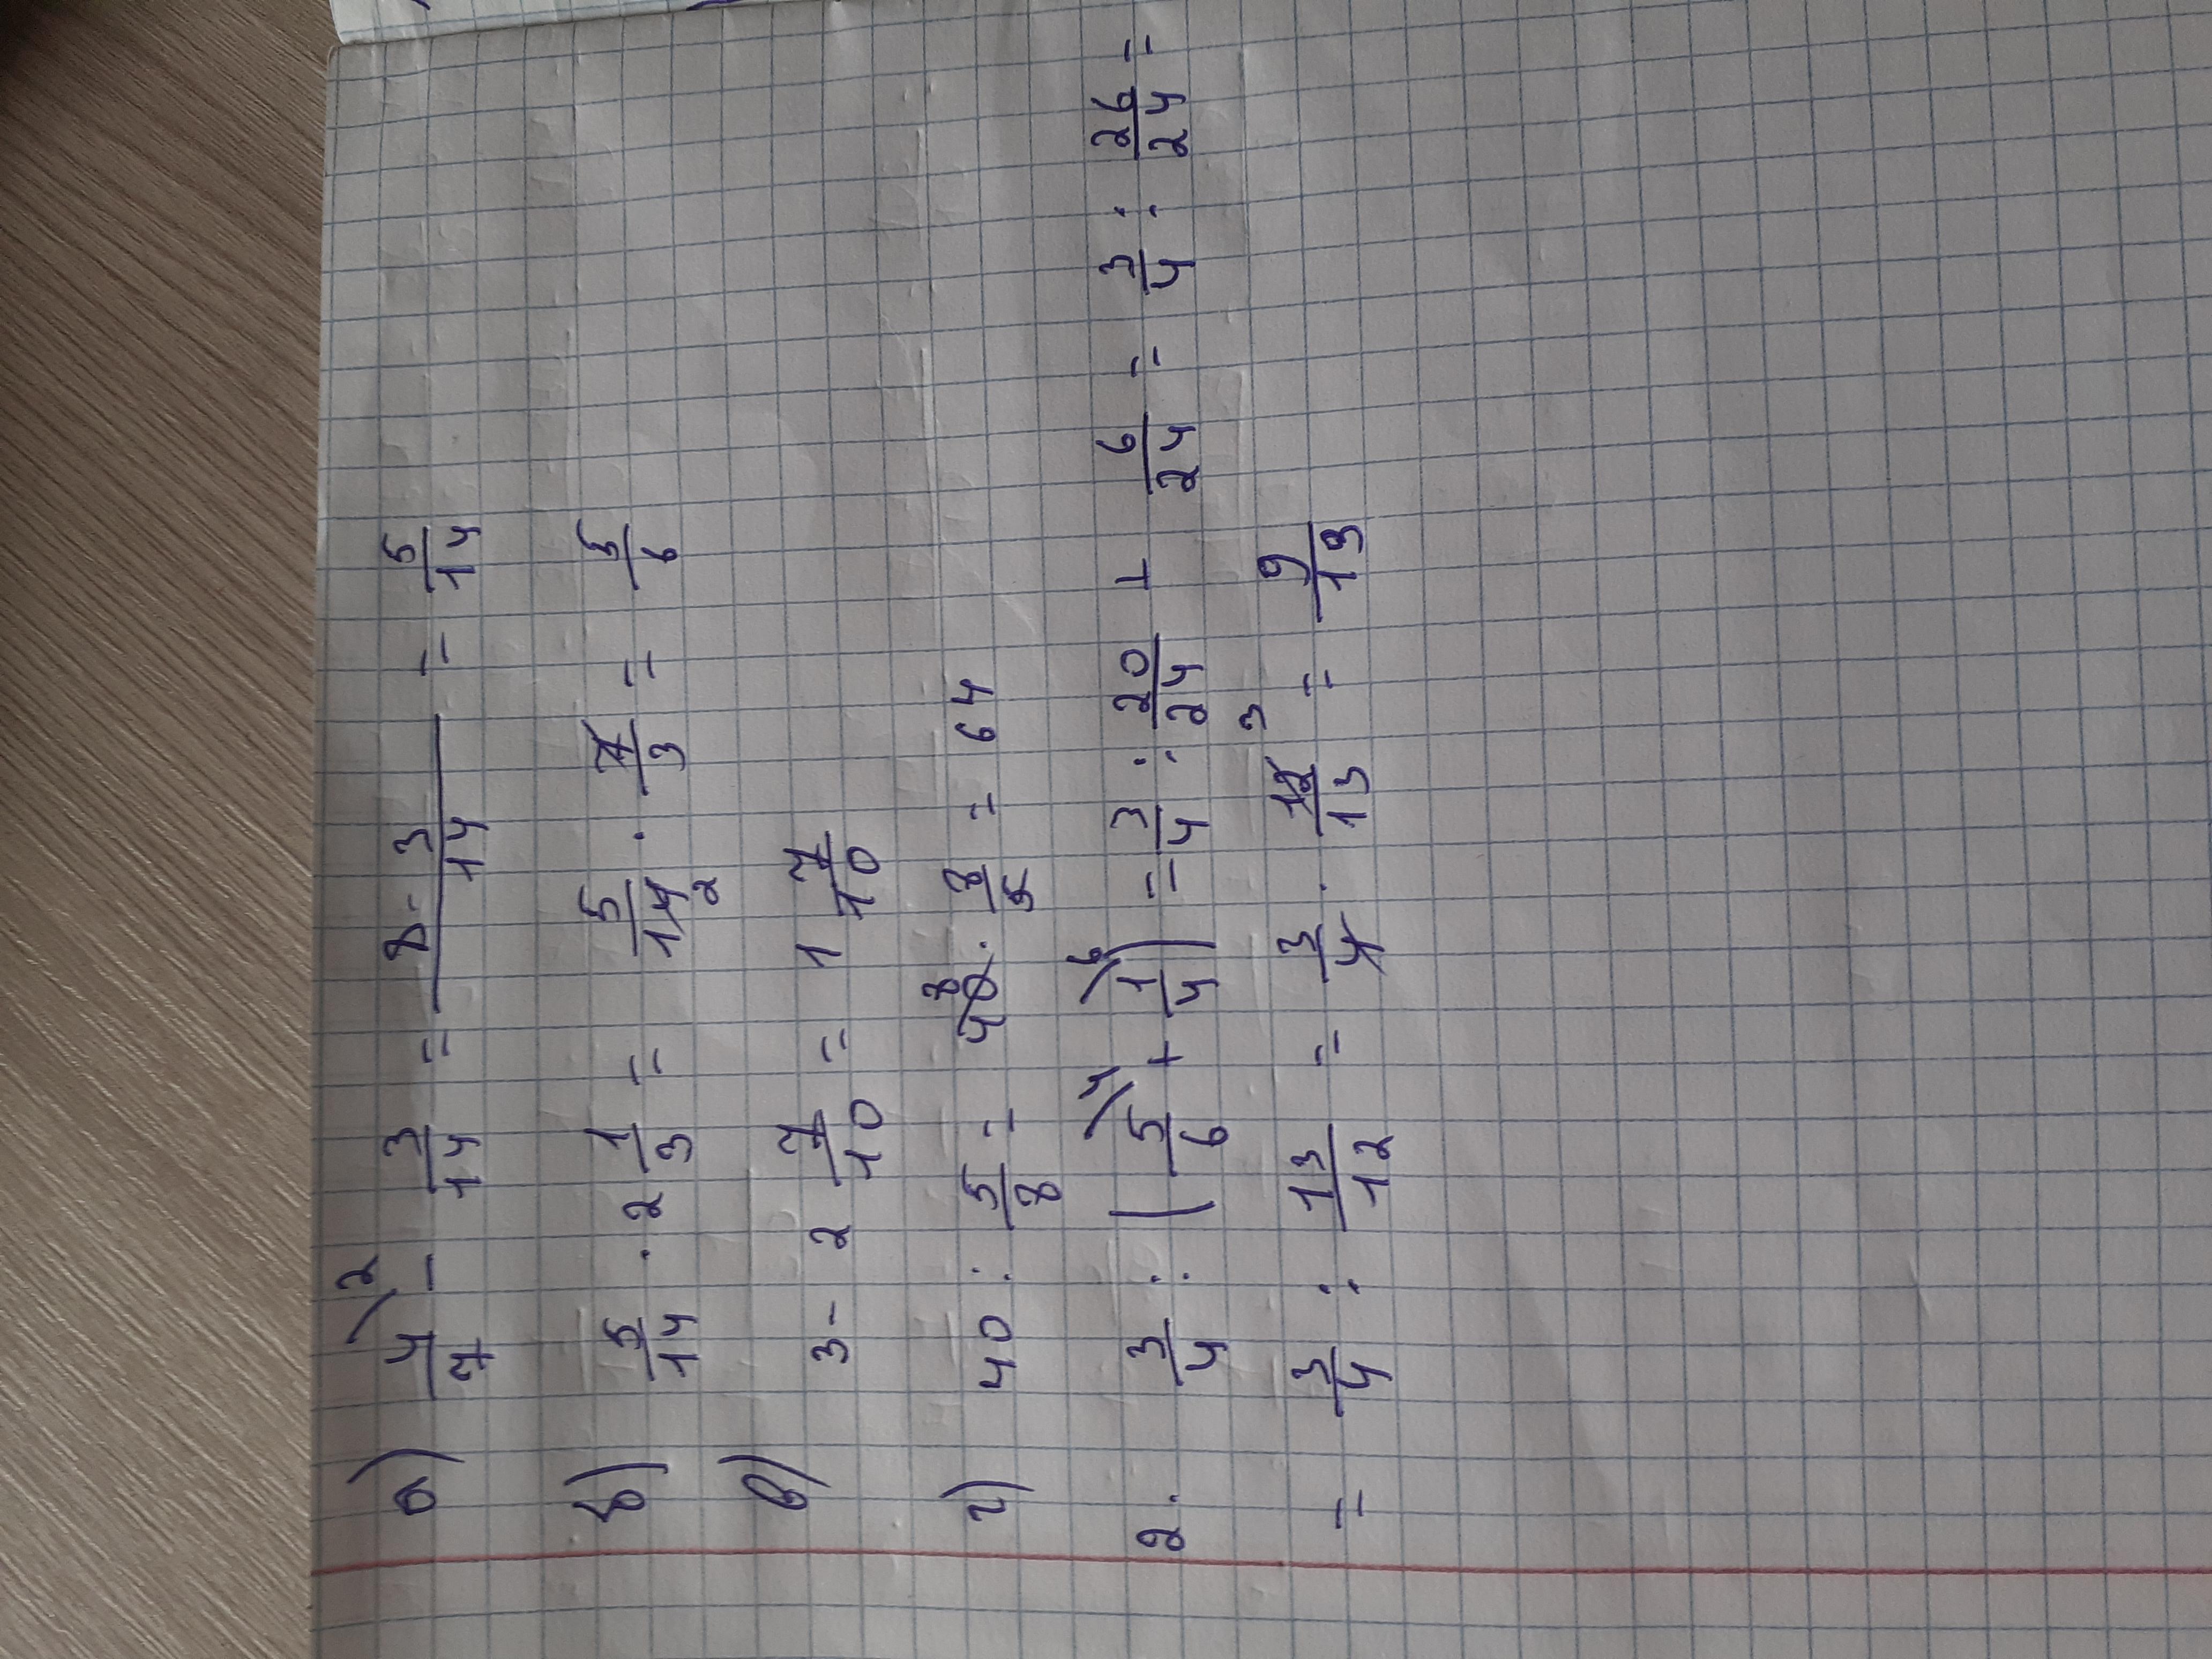 а) 4/7 \2 - 3/14 = 8-3/14 = 5/14
б) 5/14 · 2 1/3 = 5/14 2 · 7/3 = 5/6
в) 3 - 2 7/10 = 1 7/10
г) 40 : 5/8 = 40 8 · 8/5 = 64
2. 3/4 : ( 5/6 \4 + 1/4 \6 ) = 3/4 : 20/24 + 6/24 = 3/4 : 26/24 =
= 3/4 : 13/12 = 3/4 · 12 3/13 = 9/13